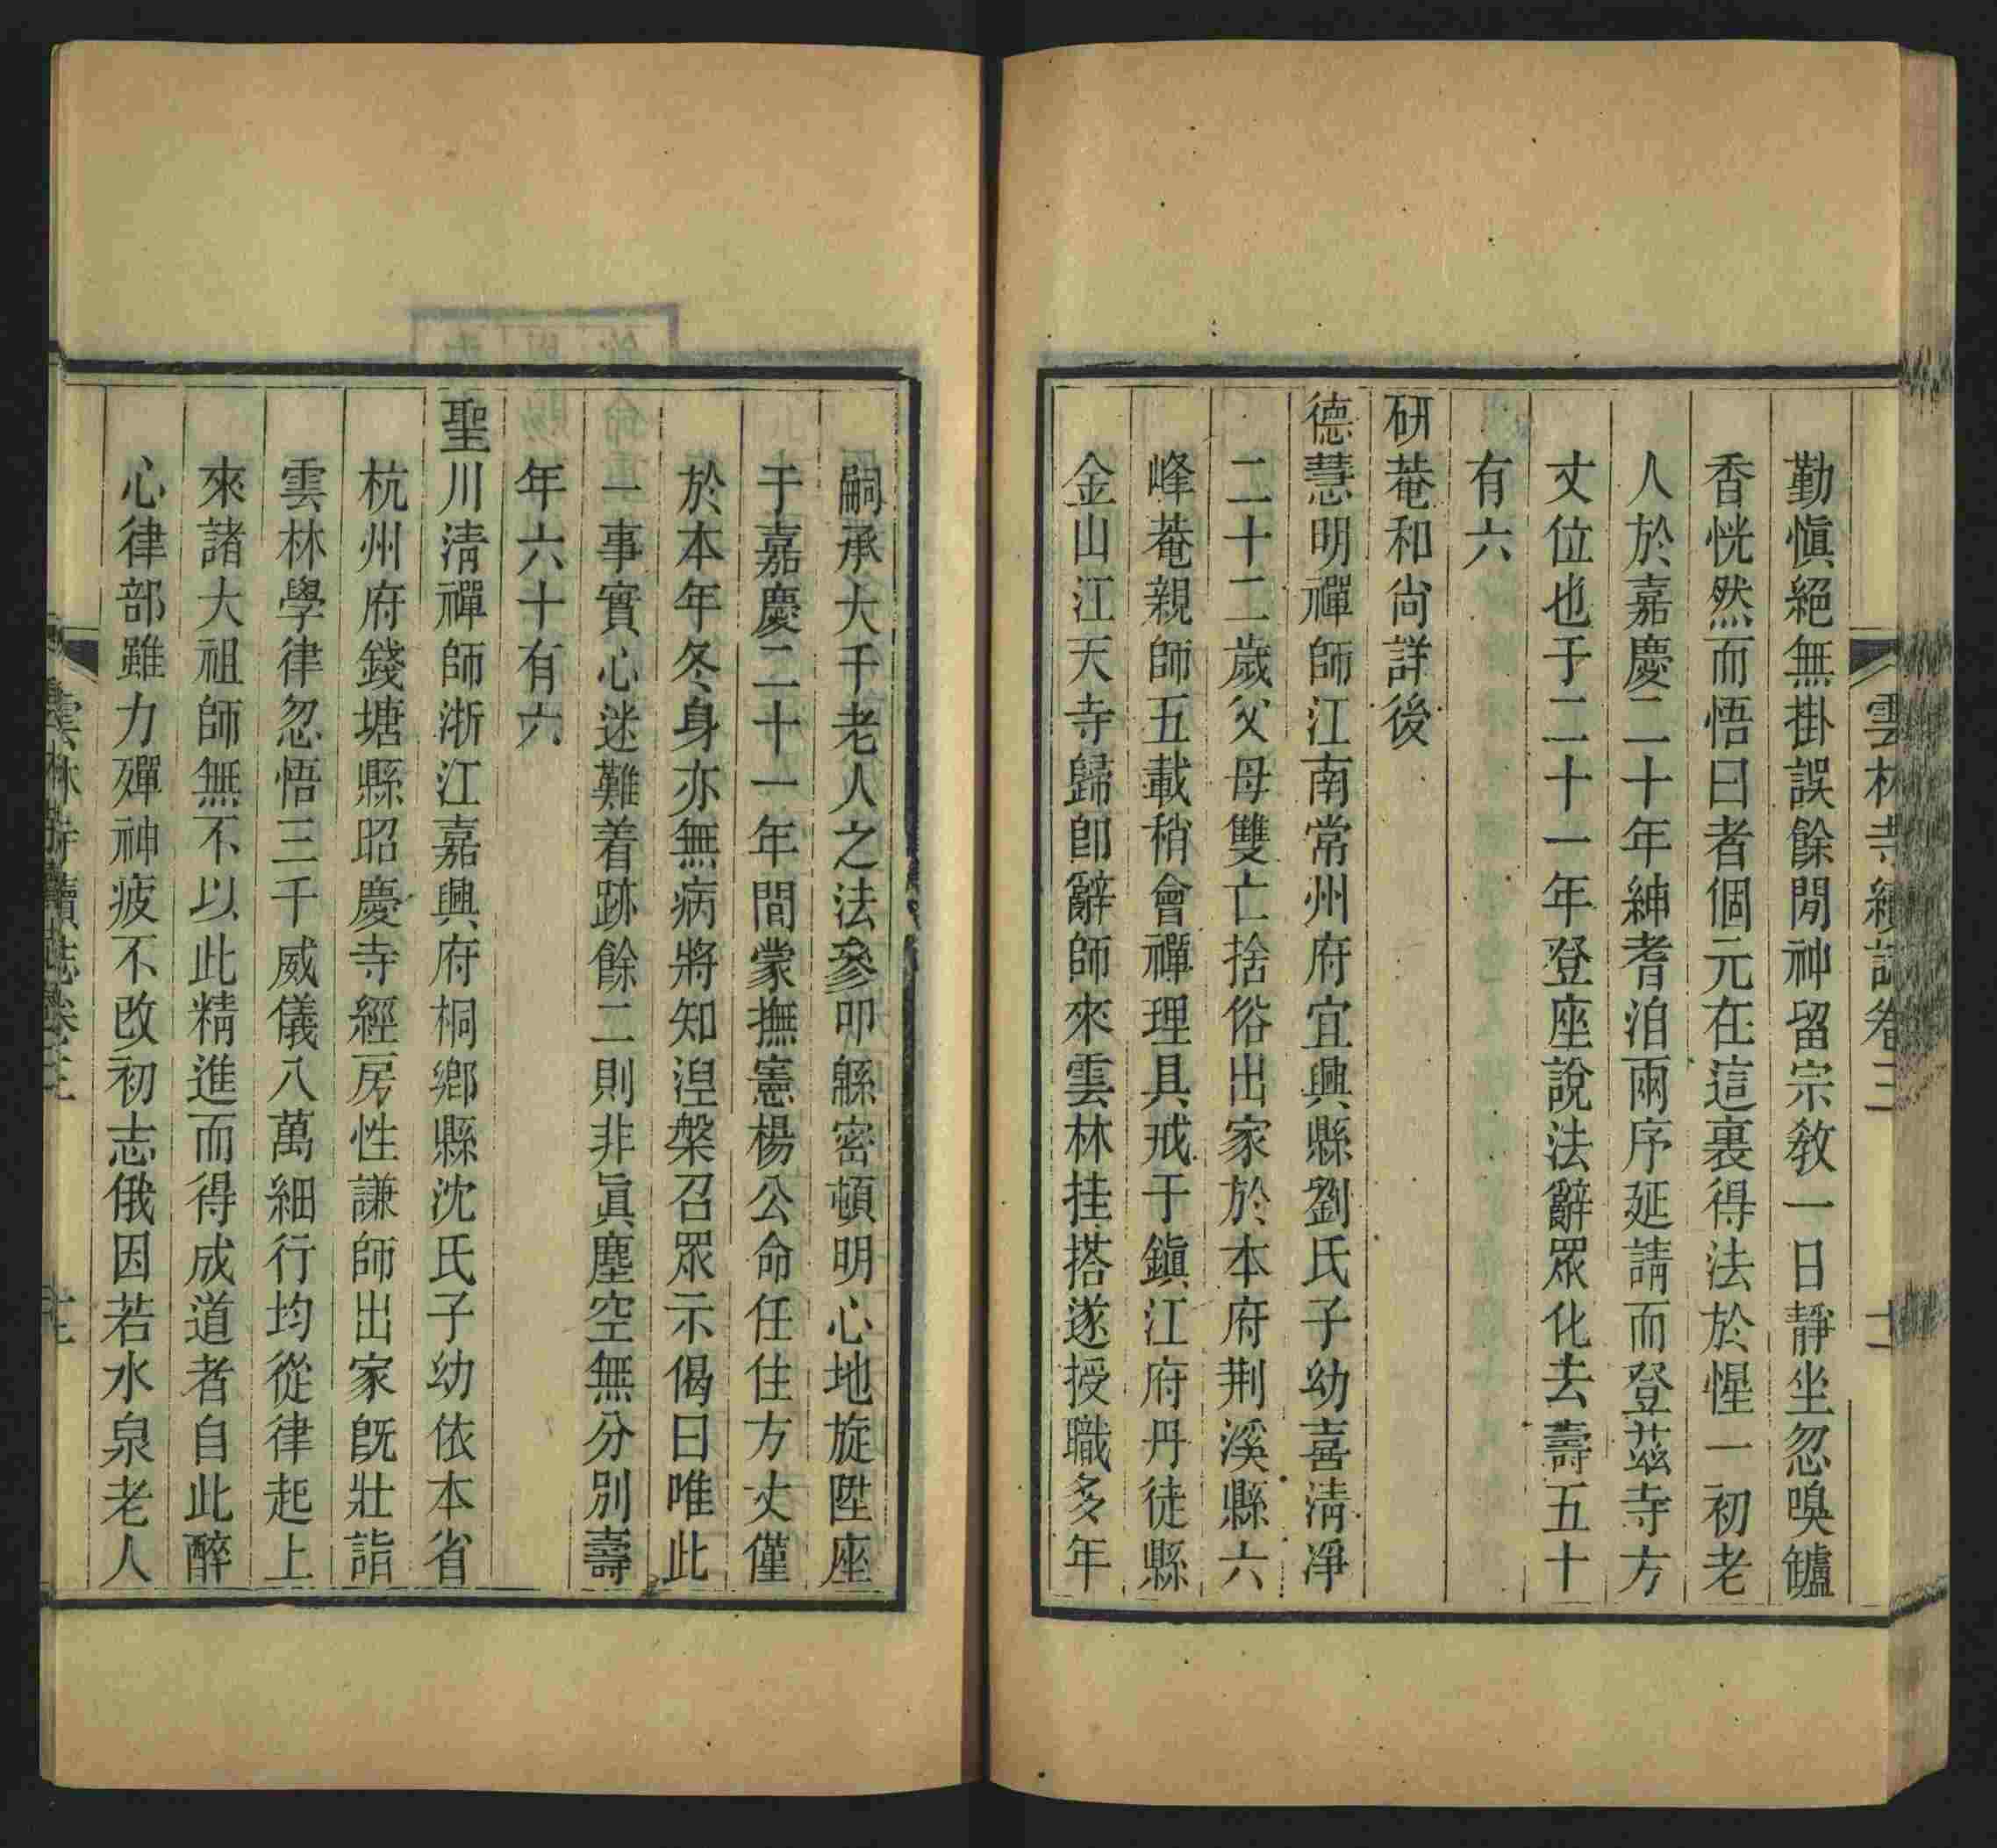 雲林寺續誌卷三
十二
勤慎絕無掛誤餘閒神留宗教一日靜坐忽嗅鑪
香恍然而悟曰者個元在這裏得法於惺一初老
人於嘉慶二十年紳耆洎兩序延請而登茲寺方
丈位也于二十一年登座說法辭眾化去壽五十
有六
研菴和尙詳後
德慧明禪師江南常州府宜興縣劉氏子幼喜淸凈
二十二歲父母雙亡捨俗出家於本府荆溪縣六
峰菴親師五載稍會禪理具戒于鎭江府丹徒縣
金山江天寺歸卽辭師來雲林挂搭遂授職多年
嗣承大千老人之法參叩緜密頓明心地旋陞座
于嘉慶二十一年間蒙撫憲楊公命任住方丈僅
於本年冬身亦無病將知湼槃召眾示偈曰唯此
一事實心迷難着跡餘二則非眞塵空無分別壽
年六十有六
聖川淸禪師浙江嘉興府桐鄉縣沈氏子幼依本省
杭州府錢塘縣昭慶寺經房性謙師出家旣壯詣
雲林學律忽悟三千威儀八萬細行均從律起上
來諸大祖師無不以此精進而得成道者自此醉
心律部雖力殫神疲不改初志俄因若水泉老人
雲林寺續誌卷三